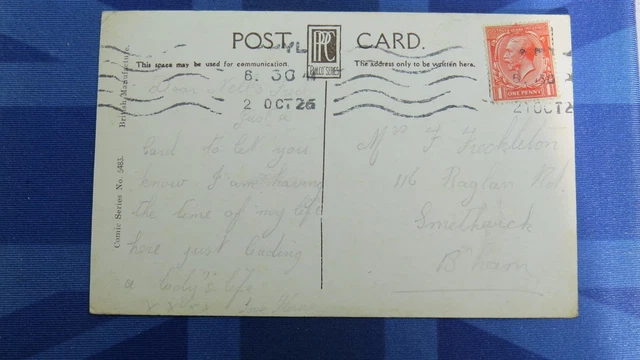 POST CARD.
PPC
PHILCO SERIES
This space may be used for communication.
The address only to be written here.
British Manufacture.
Comic Series No. 5485.
8. 30
2 OCT 26
8. 30
2 OCT 2
ONE PENNY
1 1
Dear Nell
Just a
Card to let you
know I am having
the time of my life
here just leading
a lady's life
Mrs F Freckleton
116 Raglan Rd.
Smethwick
B'ham